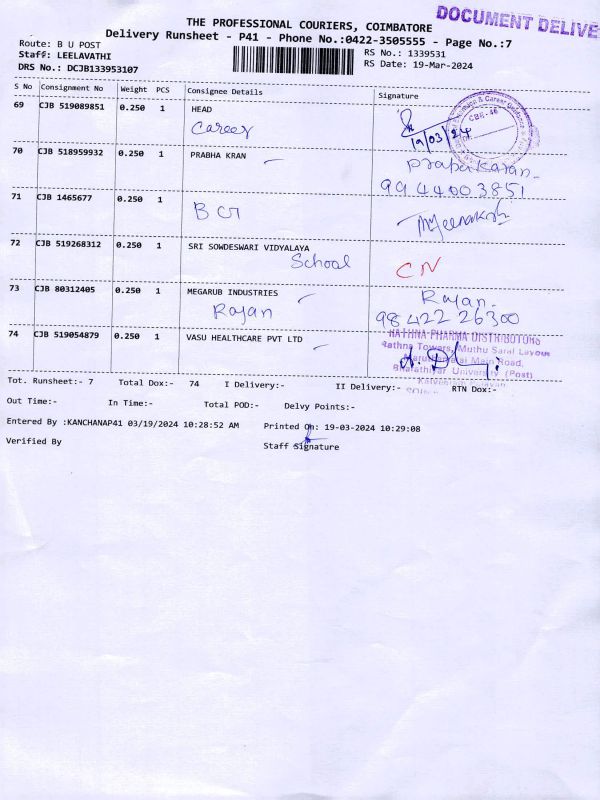 DOCUMENT DELIVE
THE PROFESSIONAL COURIERS, COIMBATORE
Delivery Runsheet - P41 - Phone No.:0422-3505555 - Page No.:7
Route: B U POST
RS No.: 1339531
Staff: LEELAVATHI
RS Date: 19-Mar-2024
DRS No.: DCJB133953107
S No Consignment No Weight PCS Consignee Details Signature
69 CJB 519089851 0.250 1 HEAD
Career
19/03/24
CBE-46
70 CJB 518959932 0.250 1 PRABHA KRAN
Prabakaran
9944003851
71 CJB 1465677 0.250 1
72 CJB 519268312 0.250 1 SRI SOWDESWARI VIDYALAYA
School CN
73 CJB 80312405 0.250 1 MEGARUB INDUSTRIES
Rajan Rajan
98422 26300
74 CJB 519054879 0.250 1 VASU HEALTHCARE PVT LTD
RATHNA PHARMA DISTRIBUTORS
Rathna Towers, Muthu Saral Layout
Main Road,
Bharathiyar University (Post)
Tot. Runsheet:- 7 Total Dox:- 74 I Delivery:- II Delivery:- RTN Dox:-
Out Time:- In Time:- Total POD:- Delvy Points:-
Entered By :KANCHANAP41 03/19/2024 10:28:52 AM Printed On: 19-03-2024 10:29:08
Verified By Staff Signature